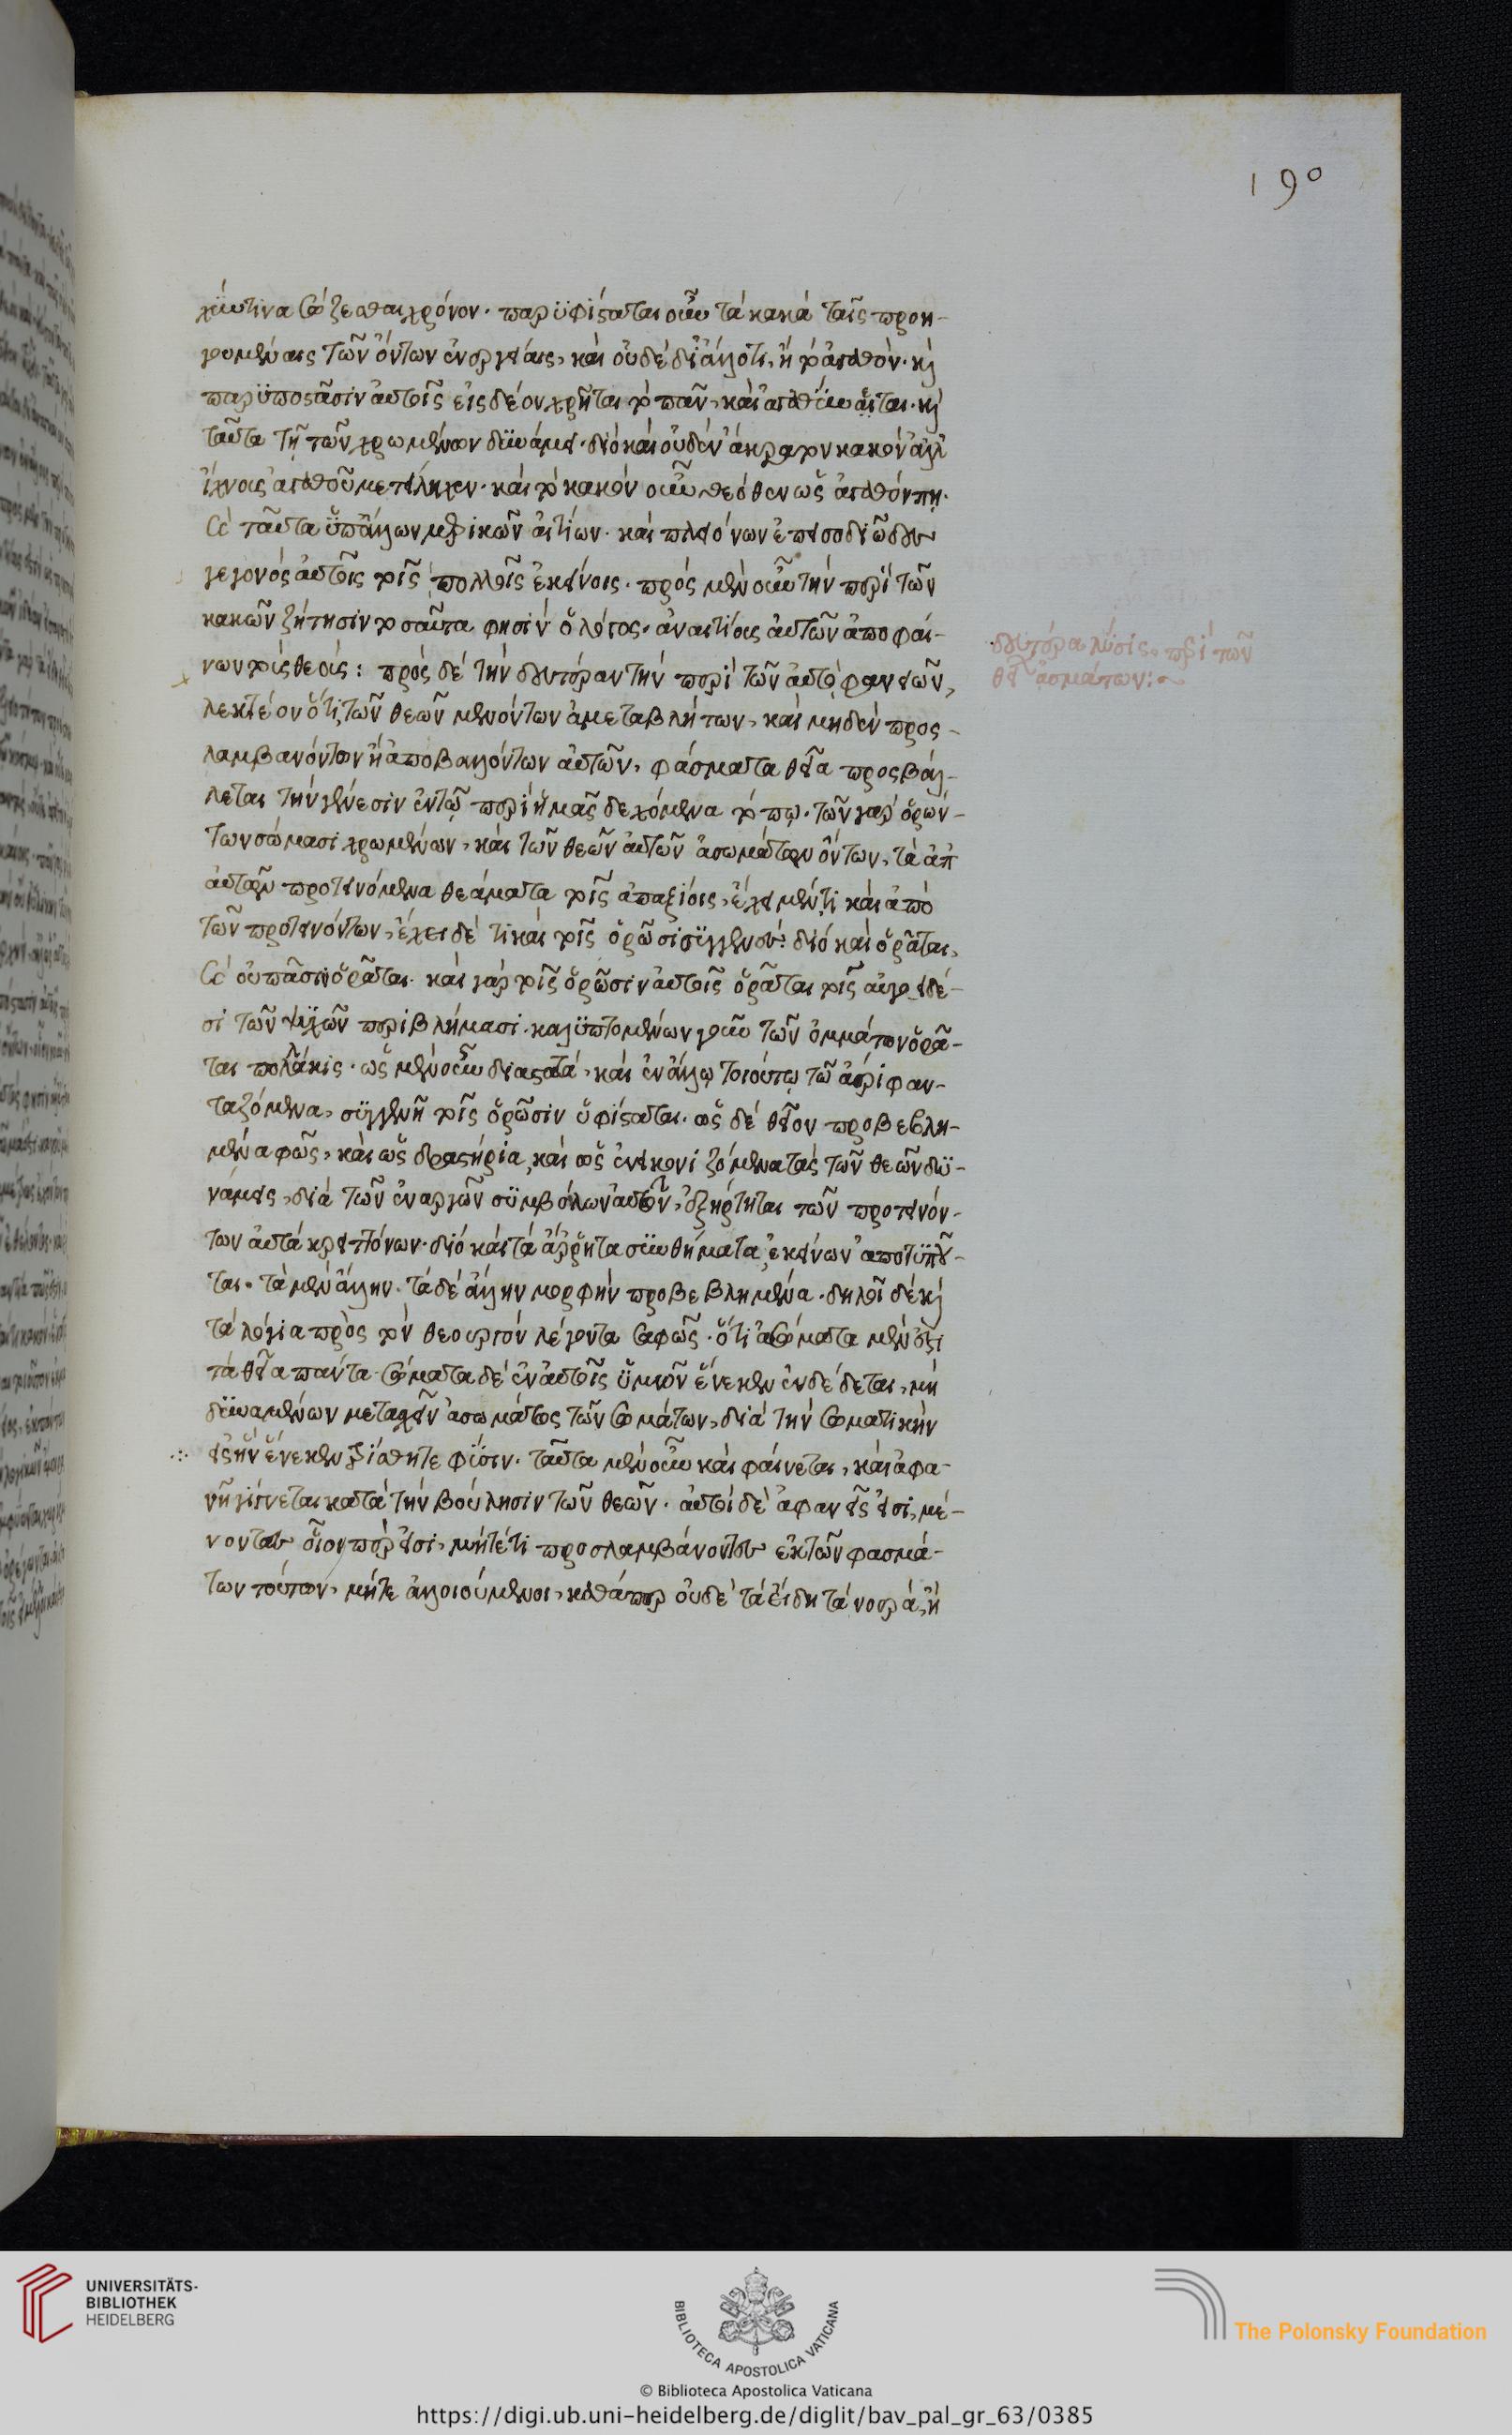 χοὖντινα σώζεσθαι χρόνον· παρυφίσταται οὖν τὰ κακὰ ταῖς προη-
γουμέναις τῶν ὄντων ἐνεργείαις, καὶ οὐδὲ δι' ἄλλό τι, ἢ τὸ ἀγαθόν· καὶ
παρυποστᾶσιν αὐτοῖς εἰς δέον χρῆται τὸ πᾶν, καὶ ἀγαθύνεται· καὶ
ταῦτα τῇ τῶν χρωμένων δυνάμει· διὸ καὶ οὐδὲν ἄκρατον κακὸν ἀλλ'
ἴχνους ἀγαθοῦ μετείληχεν· καὶ τὸ κακὸν οὖν θεόθεν ὡς ἀγαθόν πῃ·
καὶ ταῦτα ὑπ' ἄλλων μερικῶν αἰτίων· καὶ πλειόνων ἐπεισοδιῶδες
γεγονὸς αὐτοῖς τοῖς πολλοῖς ἐκείνοις· πρὸς μὲν οὖν τὴν περὶ τῶν
κακῶν ζήτησιν τοσαῦτα φησὶν ὁ λόγος, ἀναιτίους αὐτῶν ἀποφαί-
νων τοὺς θεούς: πρὸς δὲ τὴν δευτέραν τὴν περὶ τῶν αὐτοφανειῶν,
λεκτέον ὅτι τῶν θεῶν μενόντων ἀμεταβλήτων, καὶ μηδὲν προς-
λαμβανόντων ἢ ἀποβαλλόντων αὐτῶν, φάσματα θεῖα προςβάλ-
λεται τὴν γένεσιν ἐν τῷ περὶ ἡμᾶς δεχόμενα τόπῳ· τῶν γὰρ ὁρών-
των σώμασι χρωμένων, καὶ τῶν θεῶν αὐτῶν ἀσωμάτων ὄντων, τὰ ἀπ'
αὐτῶν προτεινόμενα θεάματα τοῖς ἀπαξίοις, ἔχει μέν τι καὶ ἀπὸ
τῶν προτεινόντων, ἔχει δέ τι καὶ τοῖς ὁρῶσι συγγενές· διὸ καὶ ὁρᾶται,
καὶ οὐ πᾶσιν ὁρᾶται· καὶ γὰρ τοῖς ὁρῶσιν αὐτοῖς ὁρᾶται τοῖς αὐγοειδέ-
σι τῶν ψυχῶν περιβλήμασι· καλυπτομένων γοῦν τῶν ὀμμάτων ὁρᾶ-
ται πολλάκις· ὡς μὲν οὖν διαστατὰ, καὶ ἐν ἄλλῳ τοιούτῳ τῷ ἀέρι φαν-
ταζόμενα, συγγενῆ τοῖς ὁρῶσιν ὑφίσταται· ὡς δὲ θεῖον προβεβλη-
μένα φῶς, καὶ ὡς δραστήρια, καὶ ὡς ἐνεικονιζόμενα τὰς τῶν θεῶν δυ-
νάμεις, διὰ τῶν ἐναργῶν συμβόλων αὐτῶν, ἐξήρτηται τῶν προτεινόν-
των αὐτὰ κρειττόνων· διὸ καὶ τὰ ἄρρητα συνθήματα, ἐκείνων ἀποτυποῦ-
ται· τὰ μὲν ἄλλην· τὰ δὲ ἄλλην μορφὴν προβεβλημένα· δηλοῖ δὲ καὶ
τὰ λόγια πρὸς τὸν θεουργὸν λέγοντα σαφῶς· ὅτι ἀσώματα μέν ἐστι
τὰ θεῖα πάντα· σώματα δὲ ἐν αὐτοῖς ὑμῶν ἕνεκεν ἐνδέδεται, μὴ
δυναμένων μετασχεῖν ἀσωμάτως τῶν σωμάτων, διὰ τὴν σωματικὴν
εἰς ἣν ἕνεκεν τρίσθητε φύσιν· ταῦτα μὲν οὖν καὶ φαίνεται, καὶ ἀφα-
νῆ γίγνεται κατὰ τὴν βούλησιν τῶν θεῶν· αὐτοὶ δὲ ἀφανεῖς εἰσι, μέ-
νοντες οἷον πέρ εἰσι, μήτέ τι προσλαμβάνοντες ἐκ τῶν φασμά-
των τούτων, μήτε ἀλλοιούμενοι, καθάπερ οὐδὲ τὰ εἴδη τὰ νοερά, ἢ
δευτέρα λύσις, περὶ τῶν
θείων φασμάτων:~
190
UNIVERSITÄTS-
BIBLIOTHEK
HEIDELBERG
BIBLIOTECA APOSTOLICA VATICANA
© Biblioteca Apostolica Vaticana
The Polonsky Foundation
https://digi.ub.uni-heidelberg.de/diglit/bav_pal_gr_63/0385